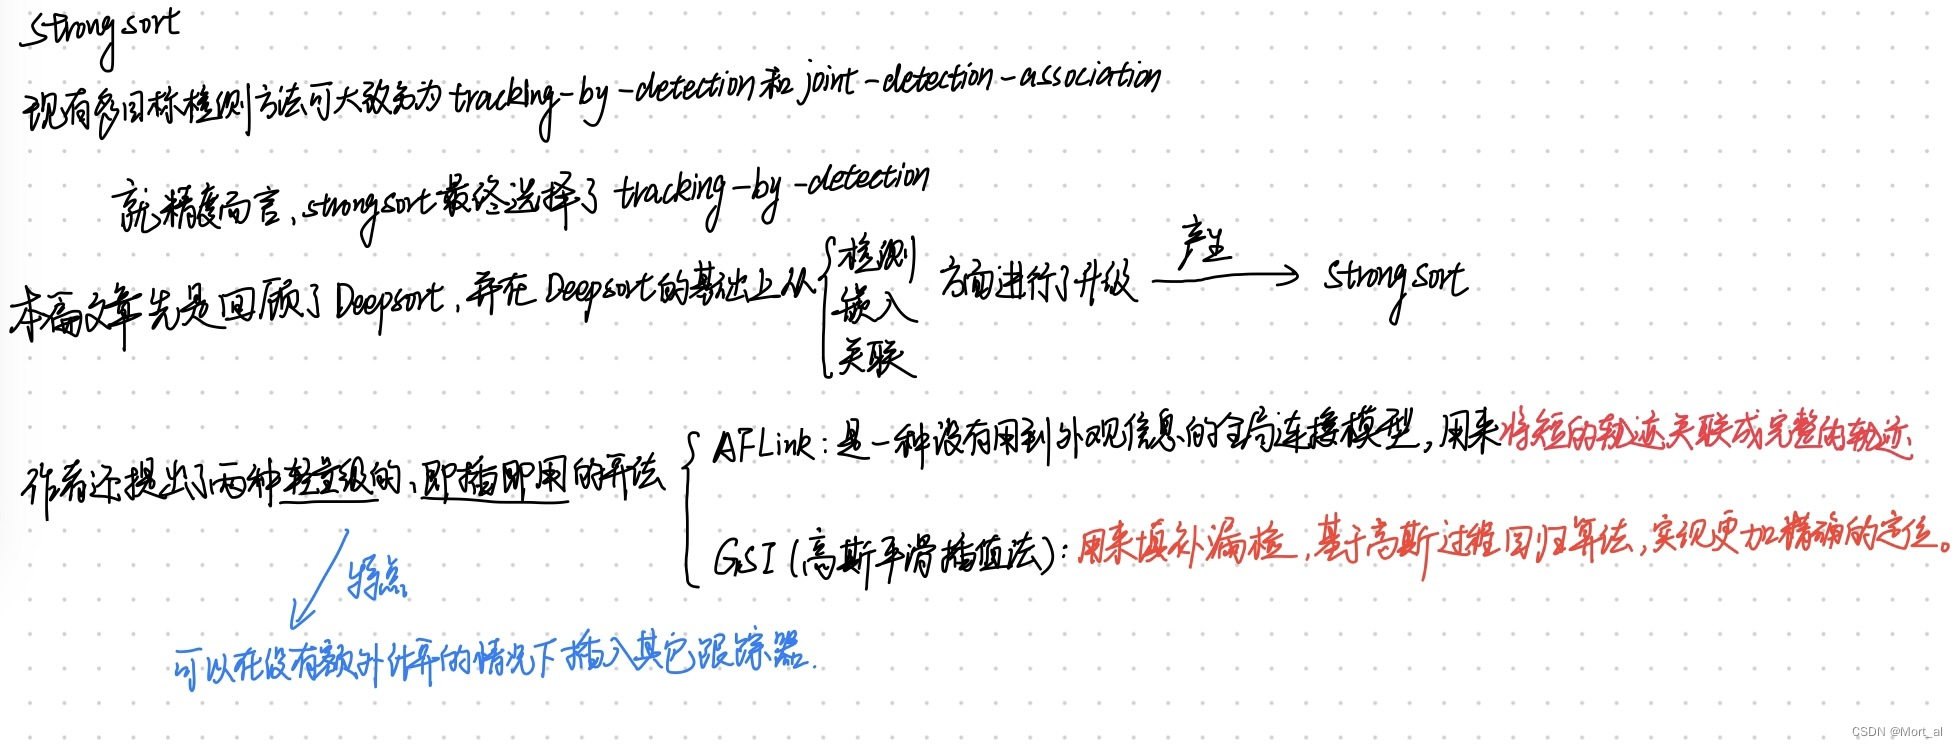 strongsort
现有多目标检测方法可大致分为tracking-by-detection和joint-detection-association
就精度而言,strongsort最终选择了 tracking-by-detection
本篇文章先是回顾了Deepsort,并在Deepsort的基础上从
检测
嵌入
关联
方面进行了升级
产生
strongsort
作者还提出了两种轻量级的、即插即用的算法
AFLink:是一种没有用到外观信息的全局连接模型,用来将短的轨迹关联成完整的轨迹.
GSI(高斯平滑插值法):用来填补漏检,基于高斯过程回归算法,实现更加精确的定位。
特点
可以在没有额外计算的情况下插入其它跟踪器.
CSDN @Mort_al